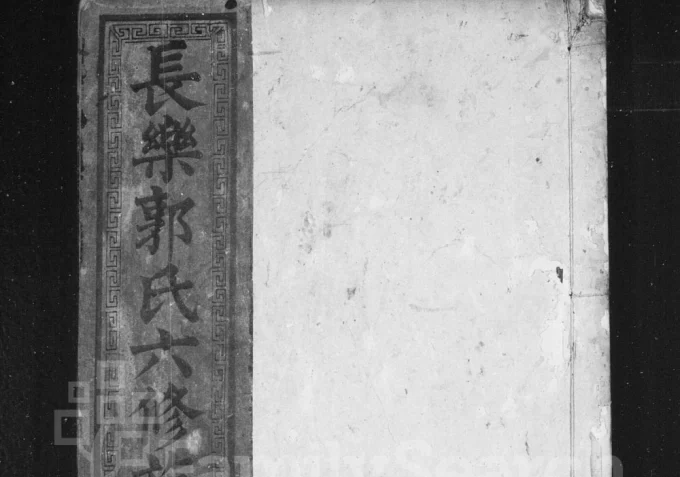 長樂郭氏六修
FamilySearch